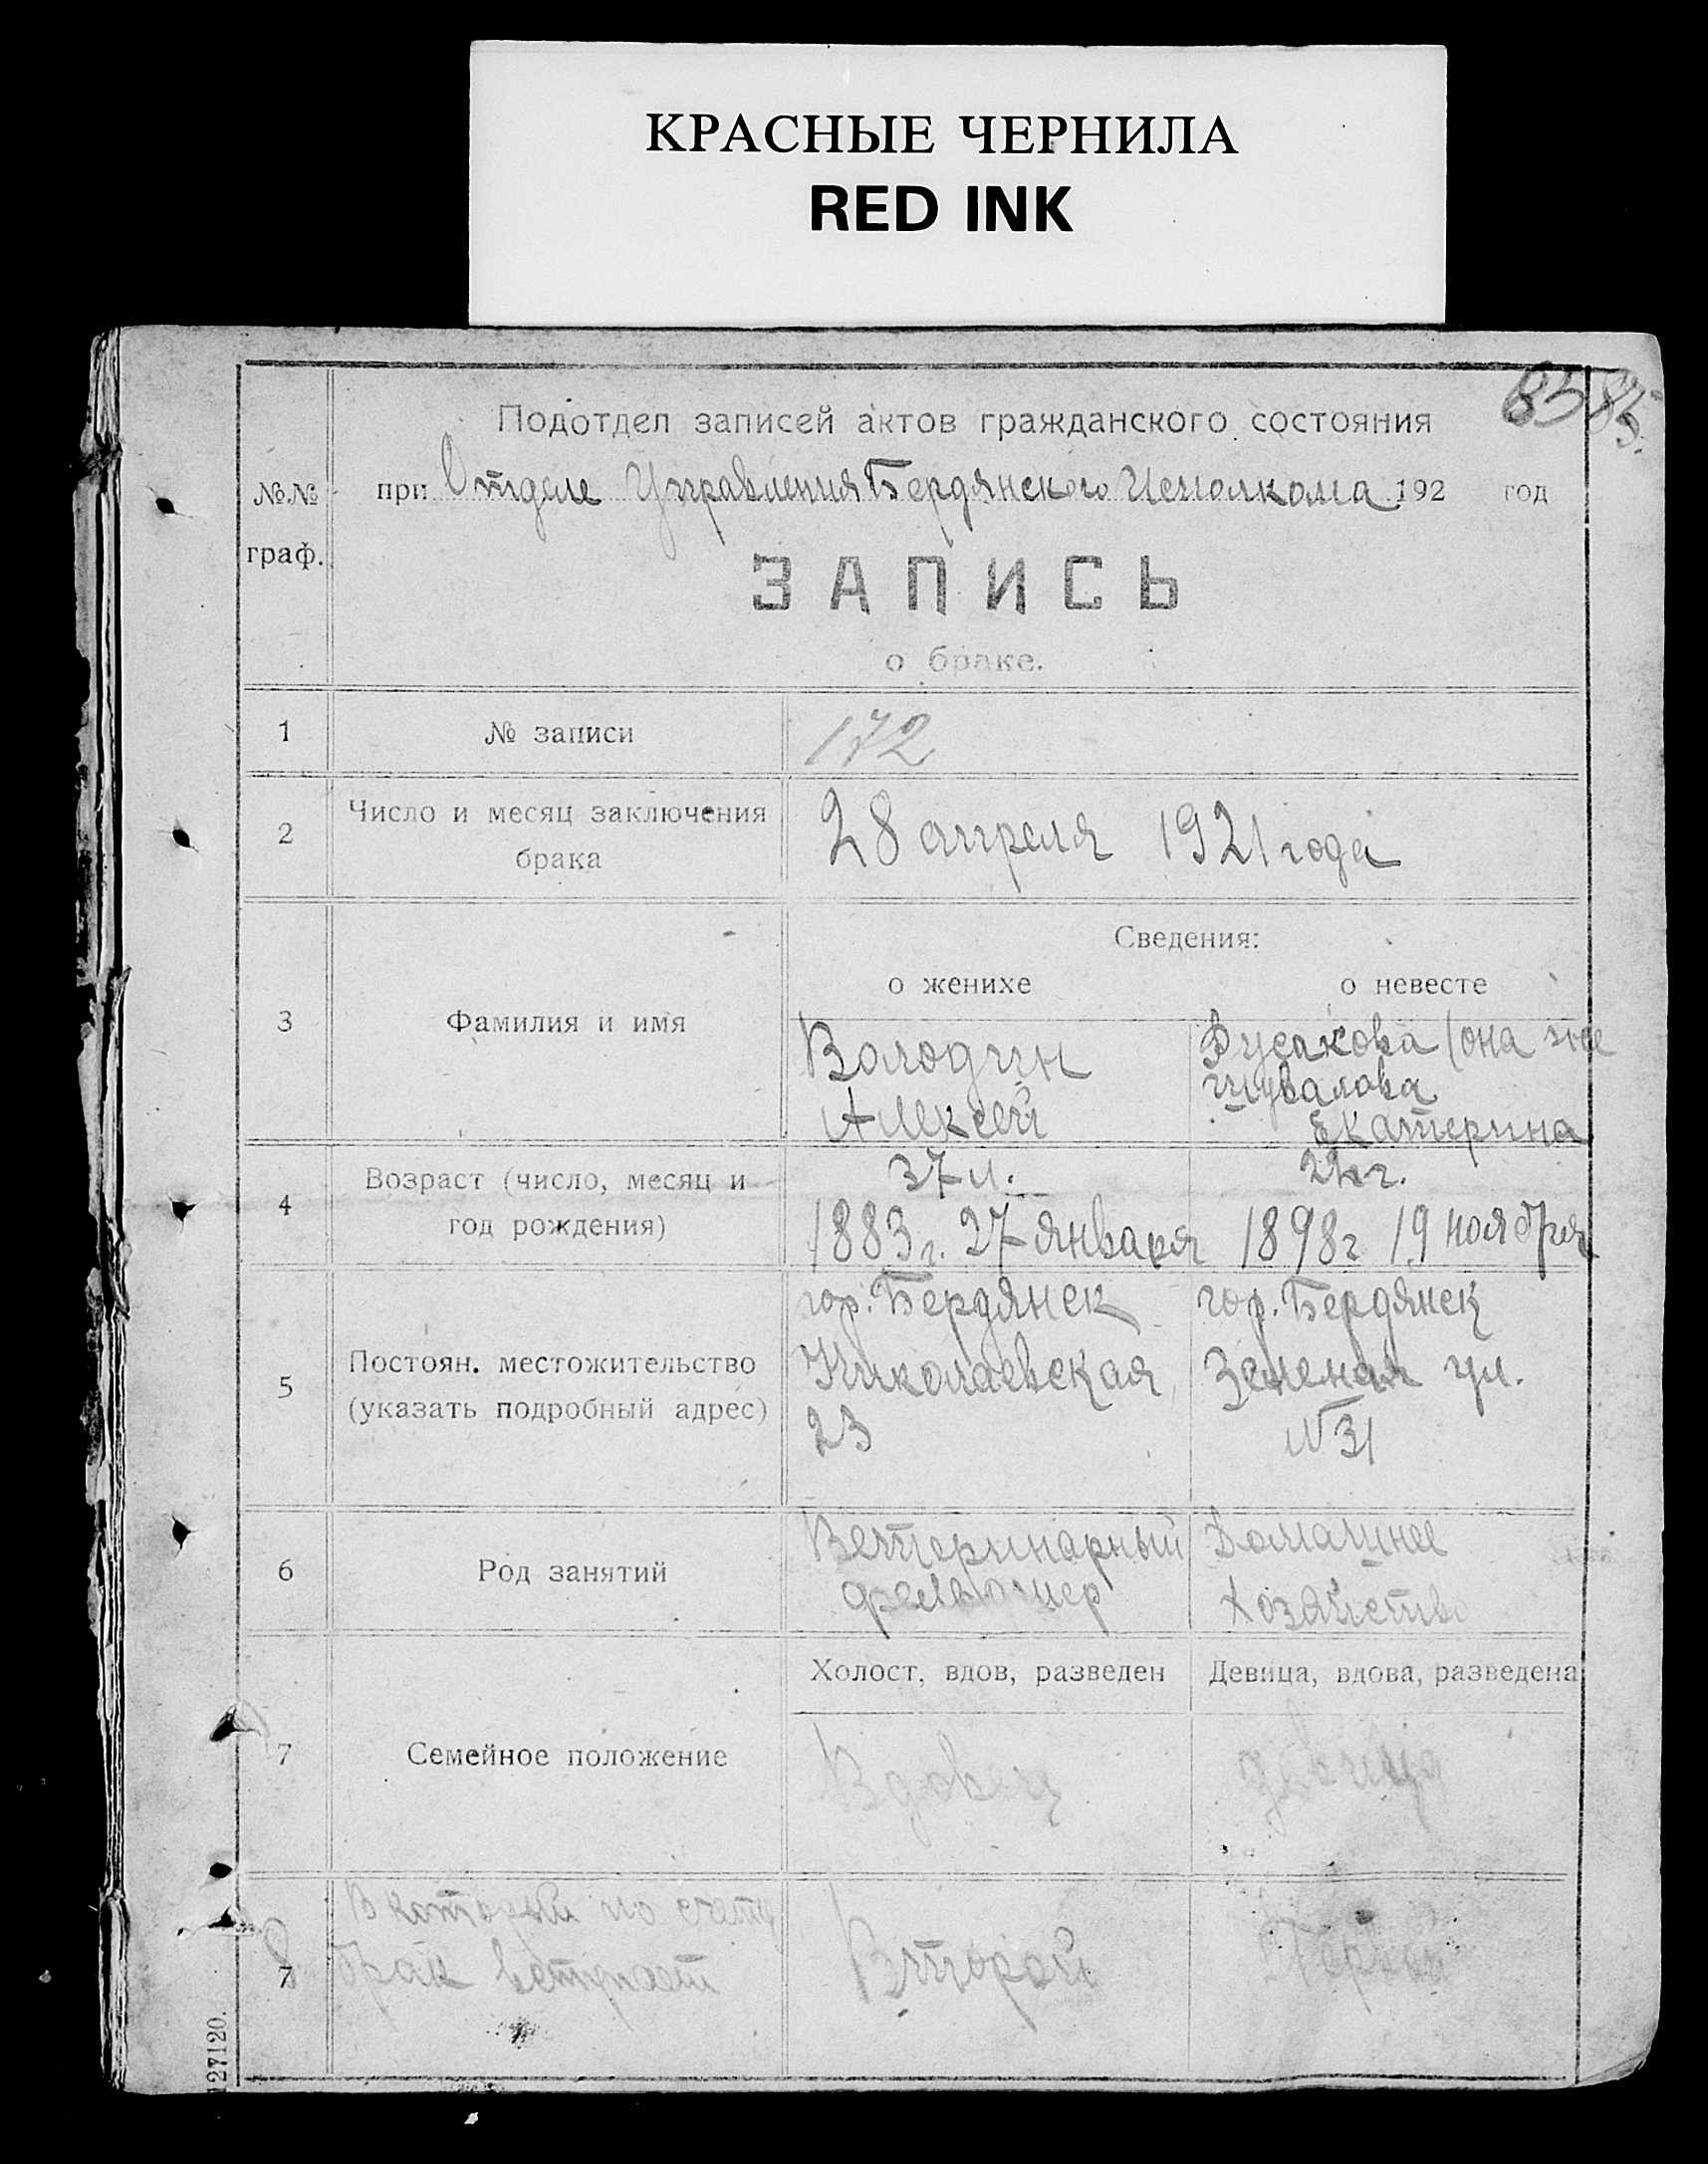 КРАСНЫЕ ЧЕРНИЛА
RED INK
Подотдел записей актов гражданского состояния
№№ граф.
при Отделе Управления Бердянского Исполкома 192 год
ЗАПИСЬ
о браке.
1 № записи 172
2 Число и месяц заключения брака 28 апреля 1921 года
Сведения:
о женихе о невесте
3 Фамилия и имя
Володин
Алексей
Дусакова (она же
Шувалова
Екатерина
4 Возраст (число, месяц и
год рождения)
37 л.
1883 г. 27 января
1898 г 19 ноября
5 Постоян. местожительство
(указать подробный адрес)
гор. Бердянск
Николаевская
23
гор. Бердянск
Зеленая ул.
N 31
6 Род занятий
Ветеринарный
фельдшер
Домашнее
хозяйство
Холост, вдов, разведен
Девица, вдова, разведена
7 Семейное положение
Вдовец
девица
8 7
В который по счету
брак вступает
Второй
Первый
127120.